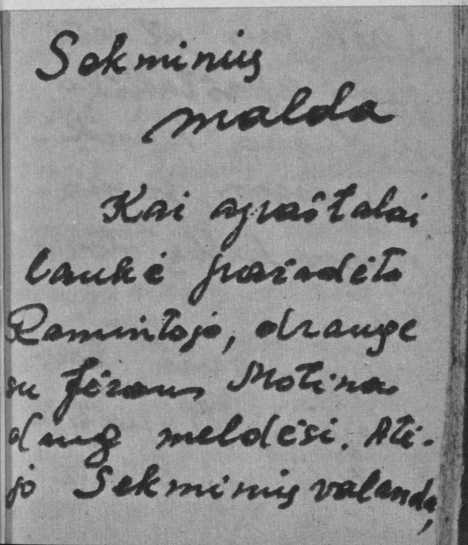 Sekminių
malda
Kai apaštalai
laukė pažadėto
Ramintojo, drauge
su Jėzaus Motina
daug meldėsi. Atė-
jo Sekminių valanda,